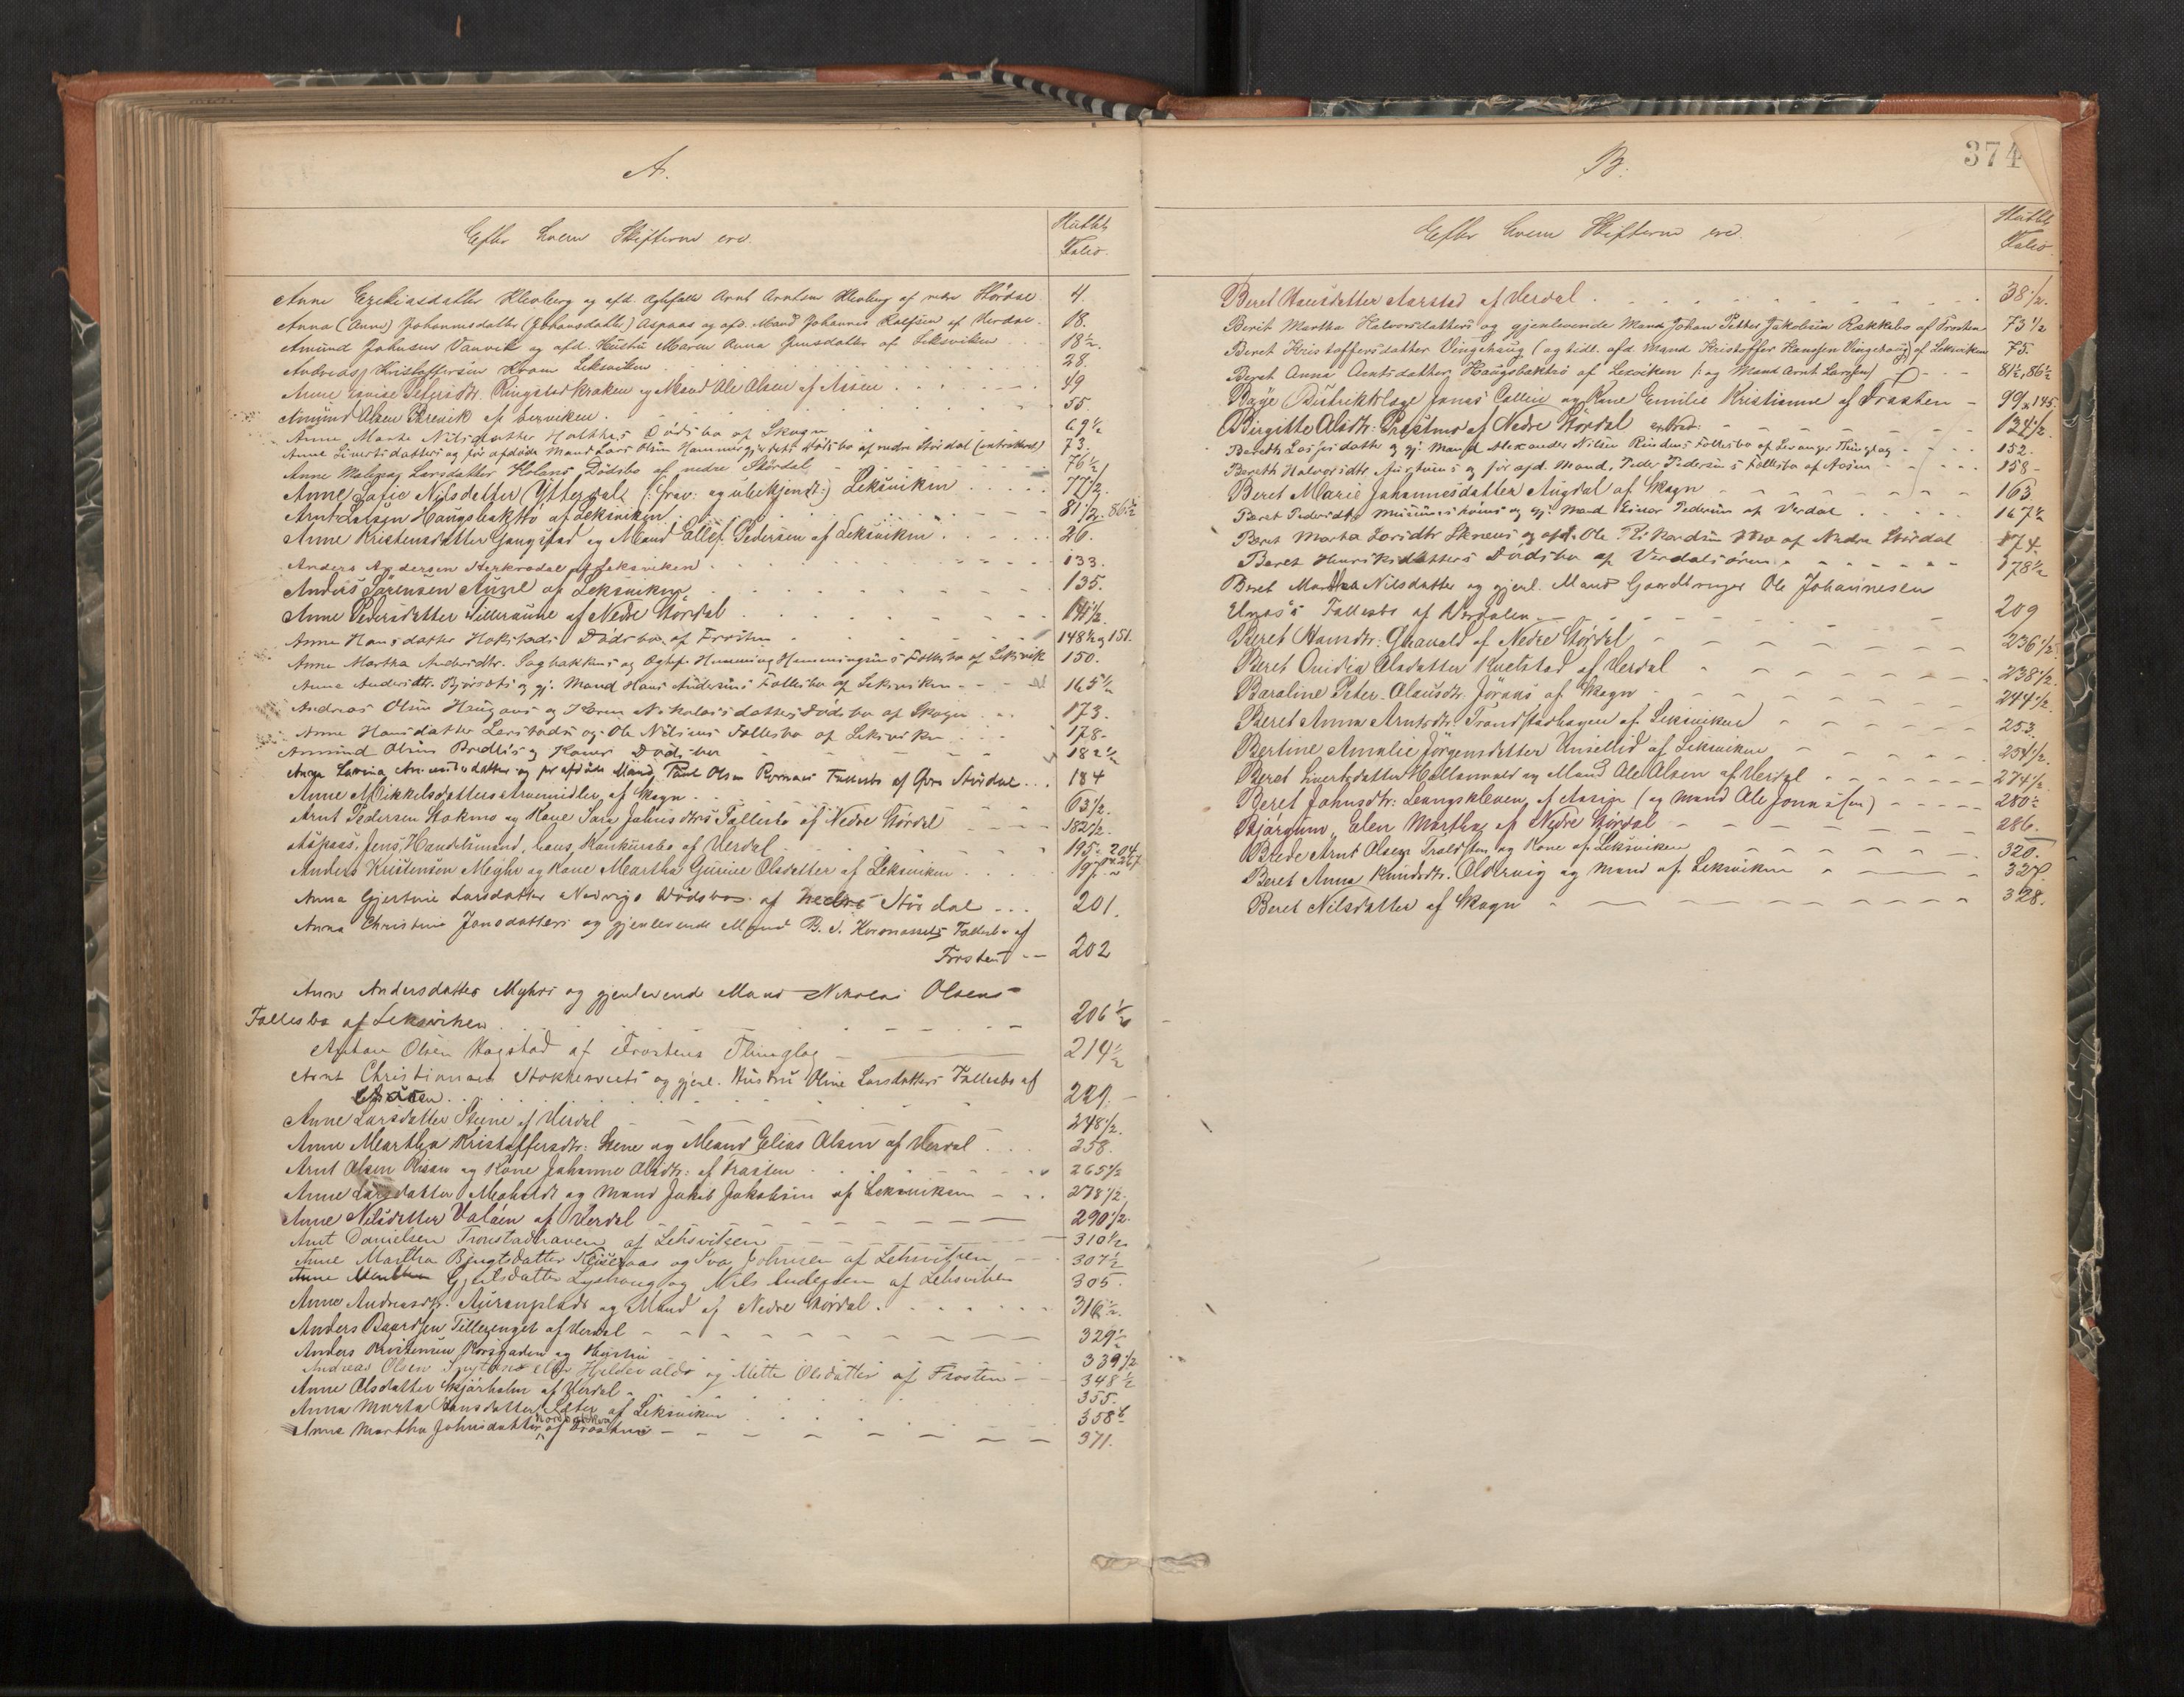 A.
Efter hvem Skifterne ere.
Folio.
Anne Ezekiasdatter Klevberg og afd. Ægtefælle Arnt Arntsen Klevberg af nedre Størdal 4.
Anna (Anne) Johannesdatter (Johansdatter) Aspaas og afd. Mand Johannes af Verdal. 18.
Amund Johnsen Vanvik og afd. Hustru Maren Anna Jensdatter af Leksviken 18½.
Andreas Kristoffersen Kvam Leksviken 28.
Anne Lovise Petersdtr. Ringstadkraken og Mand Ole Olsen af Aasen 49
Amund Olsen Brevik af Lexviken. 55.
Anne Marta Nilsdatter Dødsbo af Skogn 69½
Anne Sivertsdatters og før afdøde Mand Lars Olsen Hammergjerdets Dødsbo af nedre Størdal (extraheret) 73.
Anne Malena Larsdatter Holans Dødsbo af nedre Størdal, 76½
Anne Sofie Nilsdatter Ytterdal (: frav: og ubekjendt:) Leksviken 77½.
Arnt Larsen Haugsbakttrø af Leksviken 81½. 86½
Anne Kristensdatter Gangstad og Mand Ellef Pedersen af Leksviken 26.
Anders Andersen af Leksviken 133.
Anders Sørensen Auzel af Leksviken 135.
Anne Pedersdatter Tilleraune af Nedre Størdal 141½.
Anne Hansdatter Hokstads Dødsbo af Frosten 148½ og 151.
Anne Martha Andersdtr. Sagbakkens og Ægtef. Henning Henningsens Fællesbo af Leksvik 150.
Anne Andersdtr. og gj. Mand Hans Andersens Fællesbo af Leksviken 165½
Andreas Olsen Haugans og Karen Nikolaisdatters Dødsbo af Skogn 173.
Anne Hansdatter og Ole Nilsens Fællesbo af Leksviken 178.
Amund Olsens og Kones Dødsbo 182½
Anna Lovina og før afdøde Mand Paul Olsen Fællesbo af Øvre Størdal 184
Anne Mikkelsdatters Arvemidler, af Skogn 63½.
Arnt Pedersen Hokmo og Kone Sara Johnsdtrs Fællesbo af Nedre Størdal 182½.
Aspaas, Jens, Handelsmand, hans Konkursbo af Verdal 195. 204
Anders Kristensen Myhr og Kone Martha Gurine Olsdatter af Leksviken 197.
Anna Gjertine Larsdatter Dødsbo af nedre Størdal 201.
Anna Christine Jonsdatters og gjenlevende Mand B. J. Fællesbo af
Frosten 202
Ann Andersdatter Myhrs og gjenlevende Mand Nikolai Olsens
Fællesbo af Leksviken 206½
Anton Olsen Hagstad af Frostens Thinglag 214½
Arnt Christiansen og gjenl. Hustru Oline Larsdatters Fællesbo af
229.
Anne Larsdatter Steine af Verdal 248½.
Anne Martha Kristoffersdtr: Stene og Mand Elias Olsen af Verdal 258.
Arnt Olsen Risan og Kone Johanne Olsdtr: af Frosten 265½
Anne Larsdatter og Mand Jakob Jakobsen af Leksviken 278½.
Anne Nilsdatter Valaen af Verdal 290½.
Arnt Danielsen Tronstadhaven af Leksviken 310½
Anne Martha Bengtsdatter og Iver Johnsen af Leksviken 307½
Anne Gjertsdatter Lyshaug og Nils Andersen af Leksviken 305.
Anne Andreasdtr. Auranplads og Mand af Nedre Størdal. 316½.
Anders Baardsen Tillerenget af Verdal 329½
Anders Kristensen Korsgaden og Hustru 339½
Andreas Olsen eller og Mette Olsdatter af Frosten 348½
Anne Olsdatter Skjærholm af Verdal 355.
Anna Marta Hansdatter Sæter af Leksviken 358½
Anne Martha Johnsdatter af Frosten 371.
374
B.
Efter hvem Skifterne ere.
Folio.
Beret Hansdatter Aarstad af Verdal 38½.
Berit Martha Halvorsdatters og gjenlevende Mand Johan Petter Jakobsen Rekkebo af Frosten 73½
Beret Kristoffersdatter Vingehaug (og tidl. afd. Mand Kristoffer Hansen Vingehaug) af Leksviken 75.
Beret Anna Arntsdatter Haugsbaktrø af Lexviken (: og Mand Arnt Larsen) 81½, 86½
Bøye Distriktslæge Jonas Collin og Kone Emilie Kristianne af Frosten 99, 145.
Birgitte Olsdtr: Præstmo af Nedre Størdal 134½.
Bereth datter og gj. Mand Alexander Nilsen Rindens Fællesbo af Levanger Thinglag 152.
Bereth Halvorsdtr. og før afd. Mand, Peder Pedersens Fællesbo af Aasen 158
Beret Marie Johannesdatter Augdal af Skogn 163
Beret Pedersdtr. og gj. Mand Einar Pedersen af Verdal 167½
Beret Marta Larsdtr og afd. Ole af Nedre Størdal 174.
Beret Henriksdatters Dødsbo af Verdalsøren 178½
Beret Martha Nilsdatter og gjenl. Mand Gaardbruger Ole Johannesen
Elnæs's Fællesbo af Verdalen 209
Beret Hansdtr: af Nedre Størdal 236½.
Beret Ovidia Olsdatter Kvelstad af Verdal 238½.
Baroline Peter-Olausdtr. Jørås af Skogn 244½.
Beret Anna Arntsdtr. Tronstadhagen af Leksviken 253.
Bertine Amalie Jørgensdatter Unsellid af Leksviken 254½.
Beret Sivertsdatter Hallemvald og Mand Ole Olsen af Verdal 274½.
Beret Johnsdtr: af Aasen (og Mand Ole Jonassen) 280½
Bjørgum, Elen Martha, af Nedre Størdal 286.
Brede Arnt Olsen og Kone af Leksviken 320.
Beret Anna Knudsdtr. Oldervig og Mand af Leksviken 327.
Beret Nilsdatter af Skogn 328.